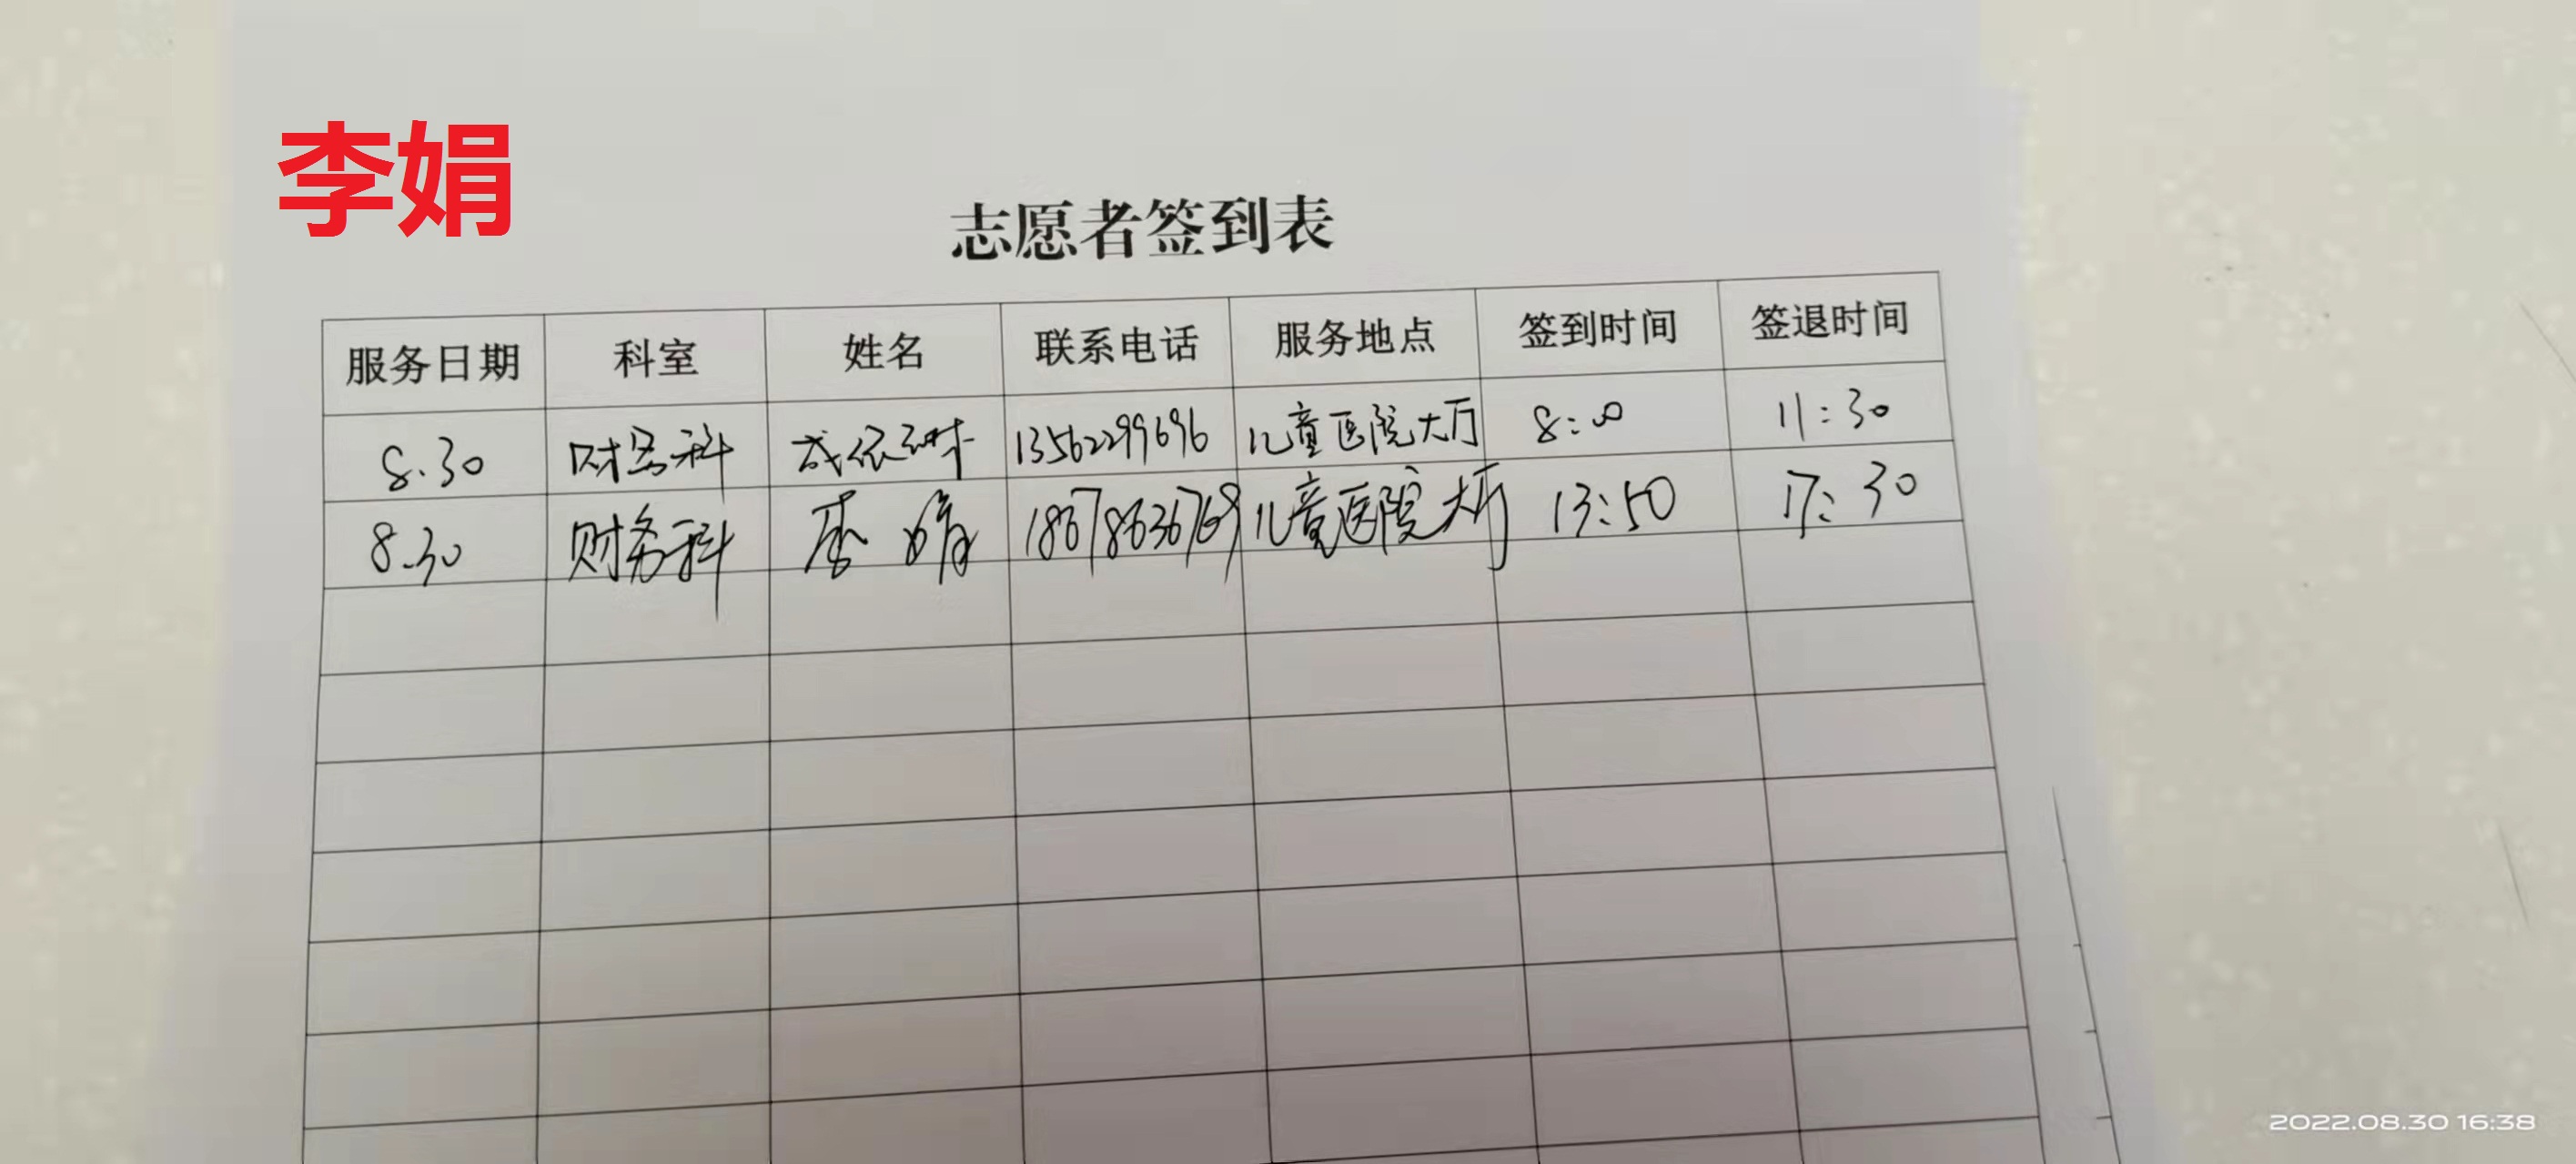 李娟
志愿者签到表
服务日期 科室 姓名 联系电话 服务地点 签到时间 签退时间
8.30 财务科 成依琳 13562299696 儿童医院大厅 8:00 11:30
8.30 财务科 李娟 18678636769 儿童医院大厅 13:50 17:30
2022.08.30 16:38